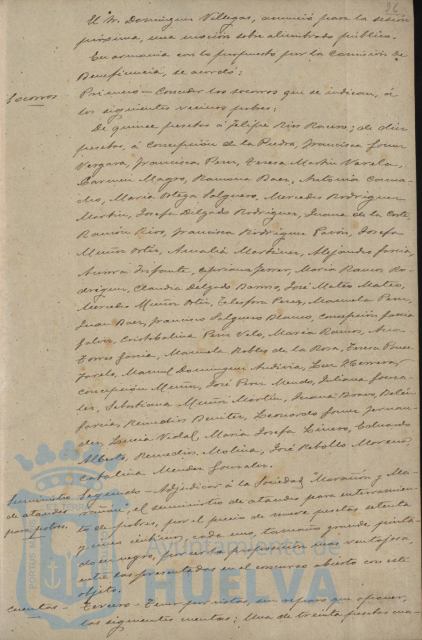 26
El Sr. Dominguez Villegas, anunció para la sesión
próxima, una moción sobre alumbrado público.
En armonia con lo propuesto por la Comisión de
Beneficencia, se acordó:
Socorros
Primero — Conceder los socorros que se indican, á
los siguientes vecinos pobres:
De quince pesetas á Felipe Rios Romero; de diez
pesetas, á Concepción de la Piedra, Francisca Gomez
Vergara, Francisca Perez, Teresa Martin Varela,
Carmen Magro, Ramona Baez, Antonia Cama-
cho, Maria Ortega Salguero, Mercedes Rodriguez
Martin, Josefa Delgado Rodriguez, Juana de la Corte,
Ramón Rios, Francisca Rodriguez Pavón, Josefa
Muñoz Ortiz, Amalia Martinez, Alejandro Garcia,
Aurora Infante, Cipriana Ferrer, Maria Ramos Ro-
driguez, Claudia Delgado Barroso, José Mateo Mateo,
Mercedes Muñoz Ortiz, Telesfora Perez, Manuela Perez,
Juan Baez, Francisco Salguero Blanco, Concepción Garcia
Cristobalina Perez Velo, Maria Ramos, Ana
Torres Garcia, Manuela Robles de la Rosa, Teresa Ponce
Manuel Dominguez Luz Herrera,
Concepción Muñoz, José Perez Mendo, Juliana Gonza-
lez, Sebastiana Muñoz Martin, Juana Bravo,
Garcia, Remedios Benitez, Leonardo Gomez Fernan-
dez, Lucia Vidal, Maria Josefa Linero, Eduardo
Alberto, Remedios Molina, José Rebollo Moreno,
Catalina Mendez Gonzalez.
Suministro
de ataudes
para pobres
Segundo — Adjudicar á la Sociedad "Marañón y Ma-
rañón", el suministro de ataudes para enterramien-
to de pobres, por el precio de nueve pesetas setenta
y cinco céntimos cada uno, tamaño grande, pinta-
dos en negro, por ser la proposición mas ventajosa,
entre las presentadas en el concurso abierto con este
objeto.
Cuentas
Tercero — Tener por vistas, sin reparo que oponer,
las siguientes cuentas; Una de treinta pesetas cua-
Ayuntamiento de
HUELVA
PORTUS MARIS